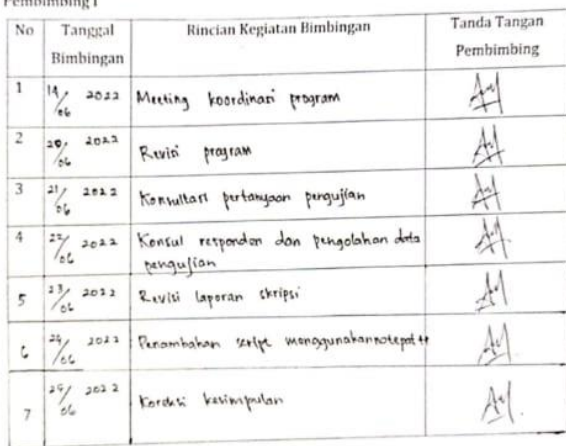 Pembimbing I
No Tanggal Bimbingan Rincian Kegiatan Bimbingan Tanda Tangan Pembimbing
1 19/06 2022 Meeting koordinasi program
2 20/06 2022 Revisi program
3 21/06 2022 Konsultasi pertanyaan pengujian
4 22/06 2022 Konsul responden dan pengolahan data
pengujian
5 23/06 2022 Revisi laporan skripsi
6 24/06 2022 Penambahan script menggunakan notepat ++
7 /06 2022 Koreksi kesimpulan